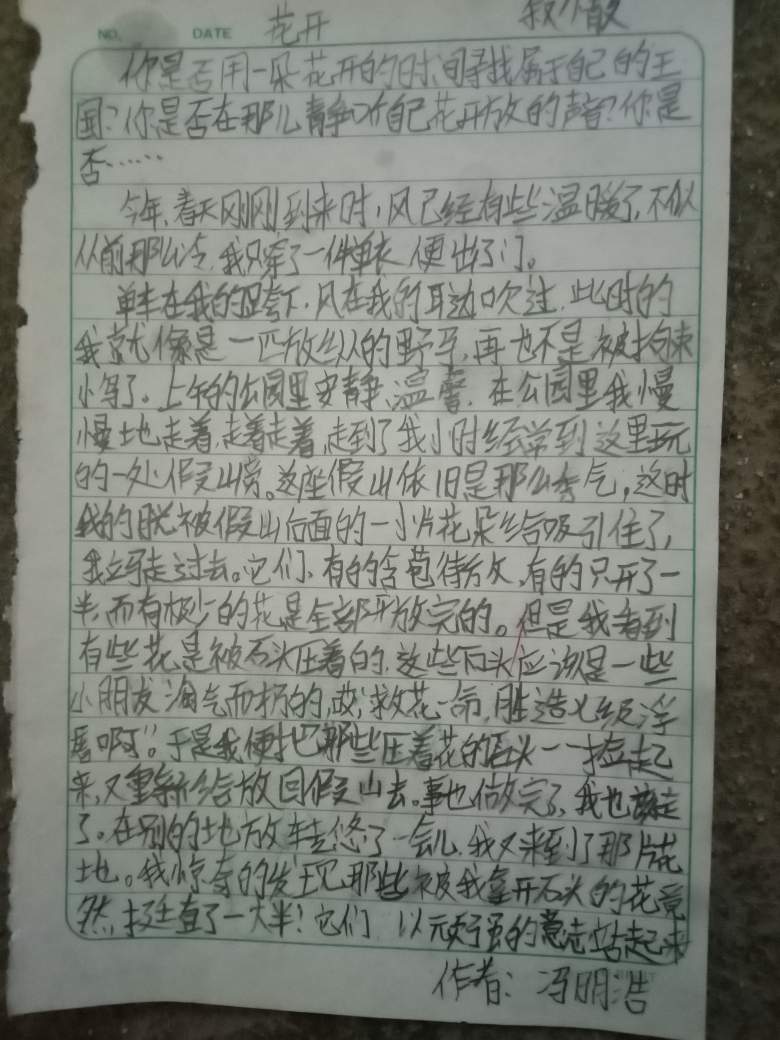 NO. DATE 花开 叙 散
你是否用一朵花开的时间寻找属于自己的王
国?你是否在那儿静听自己花开放的声音?你是
否……
今年,春天刚刚到来时,风已经有些温暖了,不似
从前那么冷,我只穿了一件单衣便出了门。
单车在我的胯下,风在我的耳边吹过,此时的
我就像是一匹放纵的野马,再也不是被拘束
小 了。上午的公园里安静、温馨,在公园里我慢
慢地走着,走着走着,走到了我小时经常到这里玩
的一处假山旁。这座假山依旧是那么秀气,这时
我的眼被假山后面的一小片花朵给吸引住了,
我立马走过去。它们,有的含苞待放,有的只开了一
半,而有极少的花是全部开放完的。但是我看到
有些花是被石头压着的,这些石头应该是一些
小朋友淘气而扔的,哎,"救花一命,胜造七级浮
屠啊"。于是我便把那些压着花的石头一一捡起
来,又重新给放回假山去。事也做完了,我也该走
了。在别的地方转悠了一会儿,我又来到了那片花
地。我惊奇的发现,那些被我拿开石头的花竟
然,挺直了一大半!它们 以 强的意志站起来
作者:冯明浩